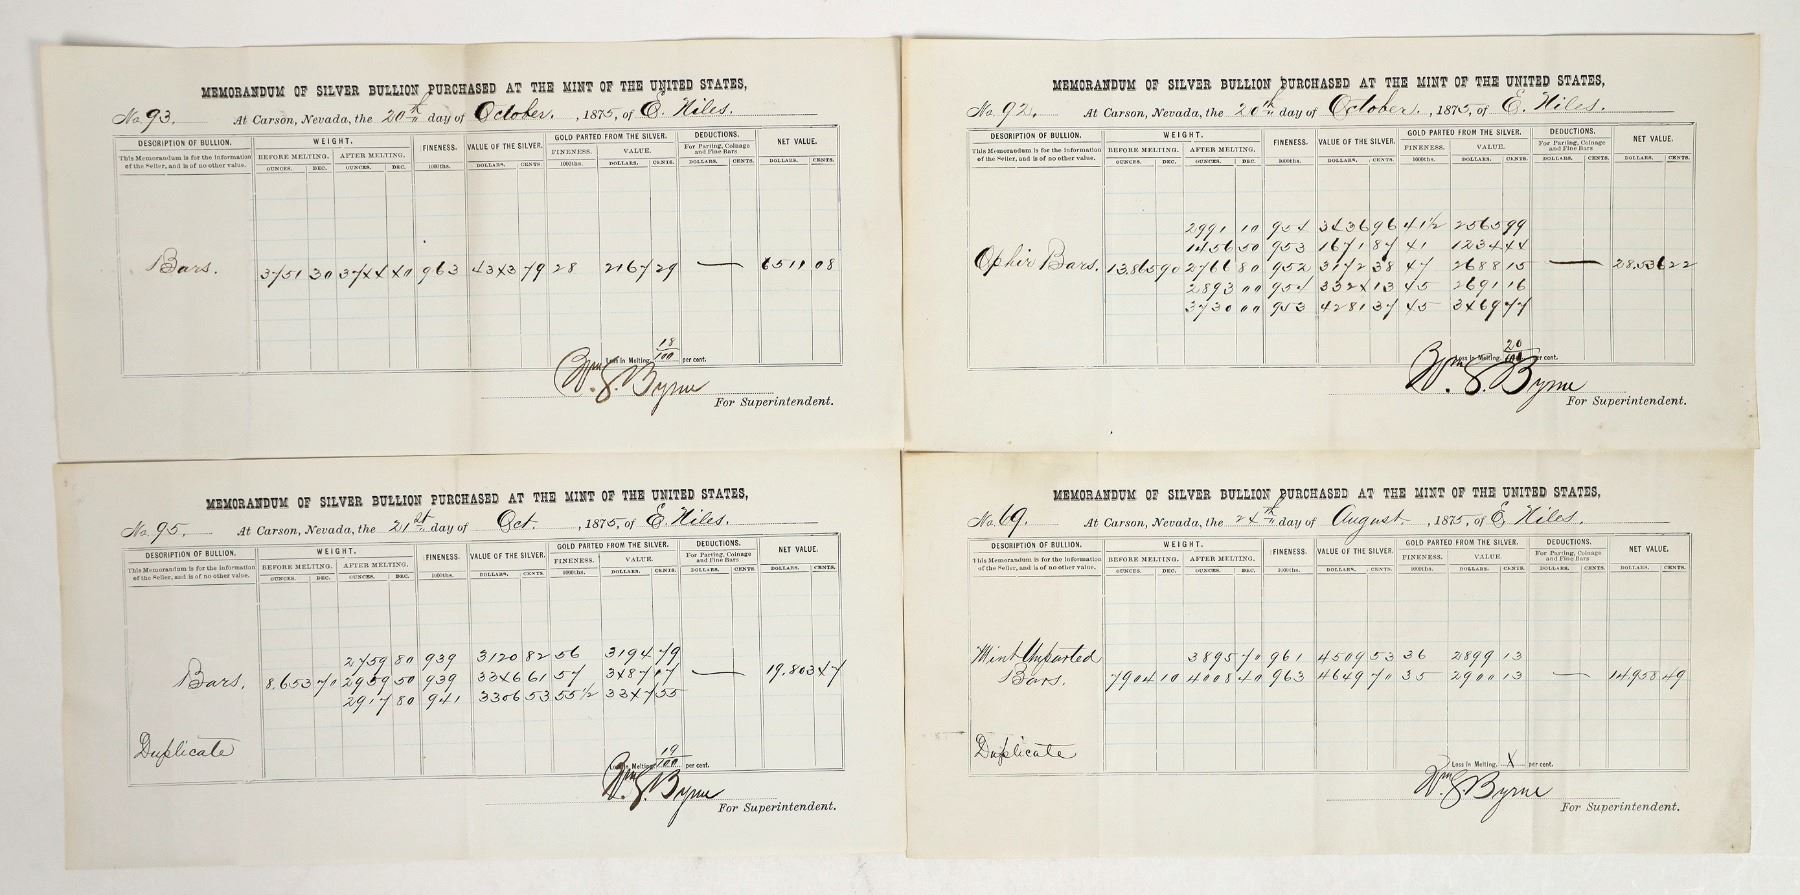 MEMORANDUM OF SILVER BULLION PURCHASED AT THE MINT OF THE UNITED STATES,
No. 93. At Carson, Nevada, the 20th day of October. , 1875, of E. Niles.
DESCRIPTION OF BULLION. WEIGHT. FINENESS. VALUE OF THE SILVER. GOLD PARTED FROM THE SILVER. DEDUCTIONS. NET VALUE.
This Memorandum is for the information of the Seller, and is of no other value. BEFORE MELTING. AFTER MELTING. FINENESS. VALUE. For Parting, Coinage and Fine Bars
OUNCES. DEC. OUNCES. DEC. 1000ths. DOLLARS. CENTS. 1000ths. DOLLARS. CENTS. DOLLARS. CENTS. DOLLARS. CENTS.
Bars. 3751 30 3744 40 963 4343 79 28 2167 29 — 6511 08
Loss in Melting, 18/100 per cent.
Wm. S. Byrne
For Superintendent.
MEMORANDUM OF SILVER BULLION PURCHASED AT THE MINT OF THE UNITED STATES,
No. 92. At Carson, Nevada, the 20th day of October. , 1875, of E. Niles.
DESCRIPTION OF BULLION. WEIGHT. FINENESS. VALUE OF THE SILVER. GOLD PARTED FROM THE SILVER. DEDUCTIONS. NET VALUE.
This Memorandum is for the information of the Seller, and is of no other value. BEFORE MELTING. AFTER MELTING. FINENESS. VALUE. For Parting, Coinage and Fine Bars
OUNCES. DEC. OUNCES. DEC. 1000ths. DOLLARS. CENTS. 1000ths. DOLLARS. CENTS. DOLLARS. CENTS. DOLLARS. CENTS.
2991 10 954 3436 96 41½ 2565 99
1456 50 953 1671 87 41 1234 44
Ophir Bars. 13865 90 2766 80 952 3172 38 47 2688 15 — 28.536 22
2893 00 954 3324 13 45 2691 16
3730 00 953 4281 37 45 3469 77
Loss in Melting, 20/100 per cent.
Wm. S. Byrne
For Superintendent.
MEMORANDUM OF SILVER BULLION PURCHASED AT THE MINT OF THE UNITED STATES,
No. 95. At Carson, Nevada, the 21st day of Oct. , 1875, of E. Niles.
DESCRIPTION OF BULLION. WEIGHT. FINENESS. VALUE OF THE SILVER. GOLD PARTED FROM THE SILVER. DEDUCTIONS. NET VALUE.
This Memorandum is for the information of the Seller, and is of no other value. BEFORE MELTING. AFTER MELTING. FINENESS. VALUE. For Parting, Coinage and Fine Bars
OUNCES. DEC. OUNCES. DEC. 1000ths. DOLLARS. CENTS. 1000ths. DOLLARS. CENTS. DOLLARS. CENTS. DOLLARS. CENTS.
2759 80 939 3120 82 56 3194 79
Bars. 8.653 70 2959 50 939 3346 61 57 3487 17 — 19.803 47
2917 80 941 3306 53 55½ 3347 55
Duplicate
Loss in Melting, 19/100 per cent.
Wm. S. Byrne
For Superintendent.
MEMORANDUM OF SILVER BULLION PURCHASED AT THE MINT OF THE UNITED STATES,
No. 69. At Carson, Nevada, the 24th day of August. , 1875, of E. Niles.
DESCRIPTION OF BULLION. WEIGHT. FINENESS. VALUE OF THE SILVER. GOLD PARTED FROM THE SILVER. DEDUCTIONS. NET VALUE.
This Memorandum is for the information of the Seller, and is of no other value. BEFORE MELTING. AFTER MELTING. FINENESS. VALUE. For Parting, Coinage and Fine Bars
OUNCES. DEC. OUNCES. DEC. 1000ths. DOLLARS. CENTS. 1000ths. DOLLARS. CENTS. DOLLARS. CENTS. DOLLARS. CENTS.
Mint Unparted 3895 70 961 4509 53 36 2899 13
Bars. 7904 10 4008 40 963 4649 70 35 2900 13 — 14958 49
Duplicate
Loss in Melting, X per cent.
Wm. S. Byrne
For Superintendent.